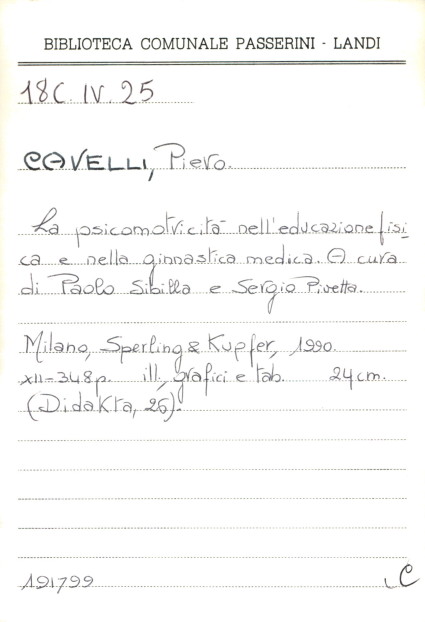 BIBLIOTECA COMUNALE PASSERINI - LANDI
18C. IV. 25
CAVELLI, Piero.
La psicomotricità nell'educazione fisi-
ca e nella ginnastica medica. A cura
di Paolo Sibilla e Sergio Pivetta.
Milano, Sperling & Kupfer, 1990.
XII-348p. ill., grafici e tab. 24cm.
(Didakta, 26).
191799 C